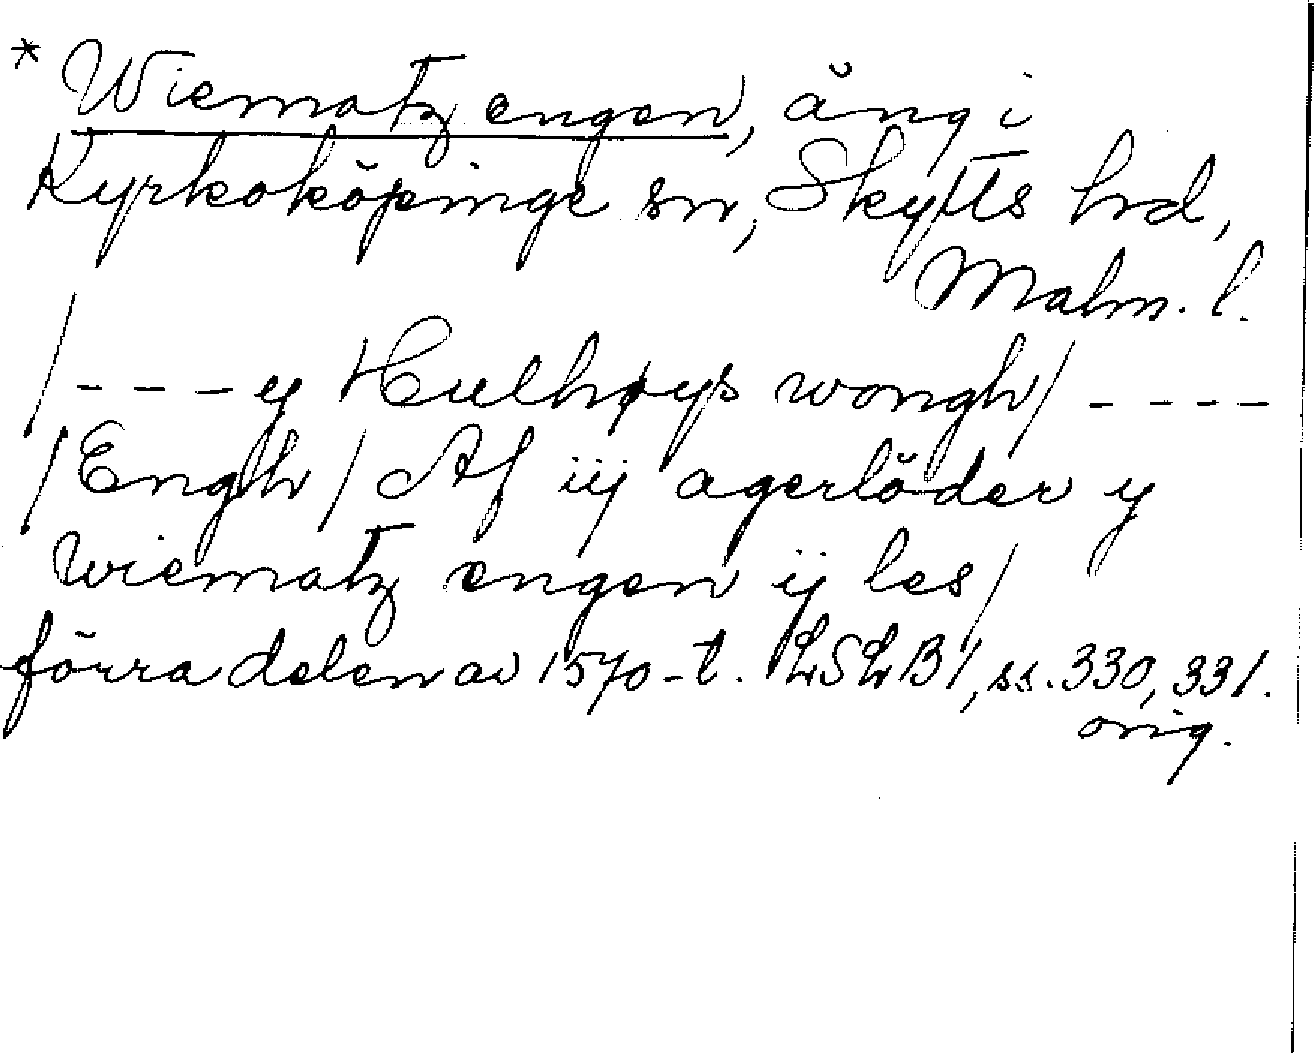 * Wiematz engen, äng i
Kyrkoköpinge sn, Skytts hd,
Malm. l.
/ - - - y Hulhøys wongh / - - - -
/ Engh / Af iij agerlöder y
Wiematz engen ij les /
förra delen av 1570-t. LSLB1, ss. 330, 331.
orig.